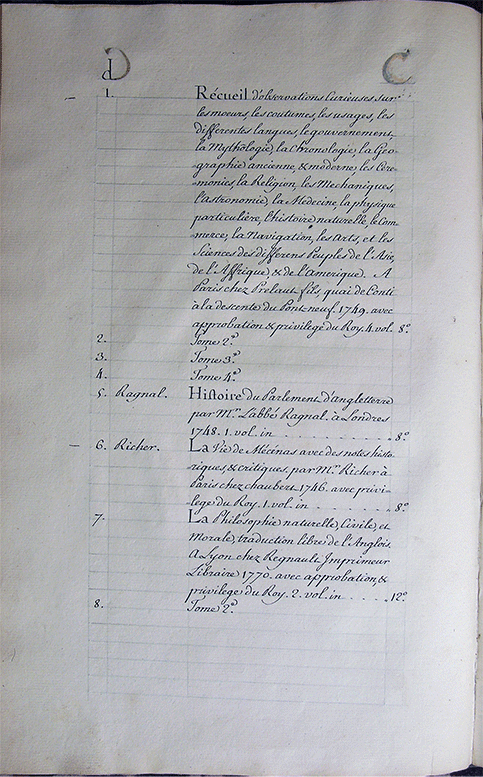 D C
d
1. Récueil d'observations Curieuses sur
les moeurs, les coutumes, les usages, les
différentes langues, le gouvernement,
la Mythologie, la Chronologie, la Geo-
-graphie ancienne, & moderne, les Cere-
-monies, la Religion, les Mechaniques,
l'astronomie, la Médecine, la physique
particulière, l'histoire naturelle, le Com-
-merce, la Navigation, les Arts, et les
Sciences des differens Peuples de l'Asie,
de l'Affrique, & de l'amerique. A
Paris chez Prelaut fils, quai de Conti
à la descente du Pont-neuf. 1749. avec
approbation & privilege du Roy. 4. vol. 8°
2. Tome 2.e
3. Tome 3.e
4. Tome 4.e
5. Ragnal. Histoire du Parlement d'angletterre
par M.r L'abbé Ragnal. à Londres
1748. 1. vol. in . . . . . . . . . . 8°
6. Richer. La Vie de Mécinas avec des notes histo-
riques, & critiques, par M.r Richer à
Paris chez chaubert. 1746. avec privi-
lege du Roy. 1. vol. in . . . . . . . . 8°
7. La Philosophie naturelle, Civile, et
Morale, traduction libre de l'Anglois.
A Lyon chez Regnault Imprimeur
Libraire, 1770. avec approbation, &
privilege du Roy. 2. vol. in . . . . . 12°
8. Tome 2.e